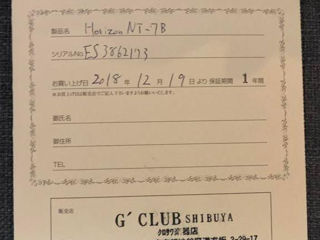 製品名 Horizon NT-7B
シリアルNo ES3862173
お買い上げ日 2018年 12月 19日より保証期間 1年間
御氏名
御住所
TEL
販売店
G' CLUB SHIBUYA
クロサワ楽器店
2-29-17